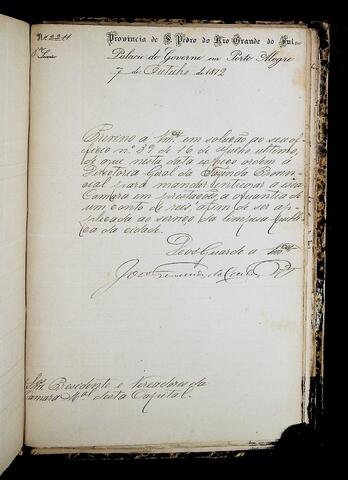 N. 2211
Provincia de S. Pedro do Rio Grande do Sul.
Palacio do Governo em Porto Alegre
7 de Outubro de 1872
a Vmces em solução ao seu of-
ficio nº 39 de 16 de Julho ultimo,
de que nesta data expeço ordem á
Directoria Geral da Fazenda Provin-
cial para mandar entregar a essa
Camara em prestações a quantia de
um conto de reis afim de ser ap-
plicada ao serviço da limpesa publi-
ca da cidade.
Deos Guarde a Vmces
Presidente e Vereadores da
Camara Mal desta Capital.